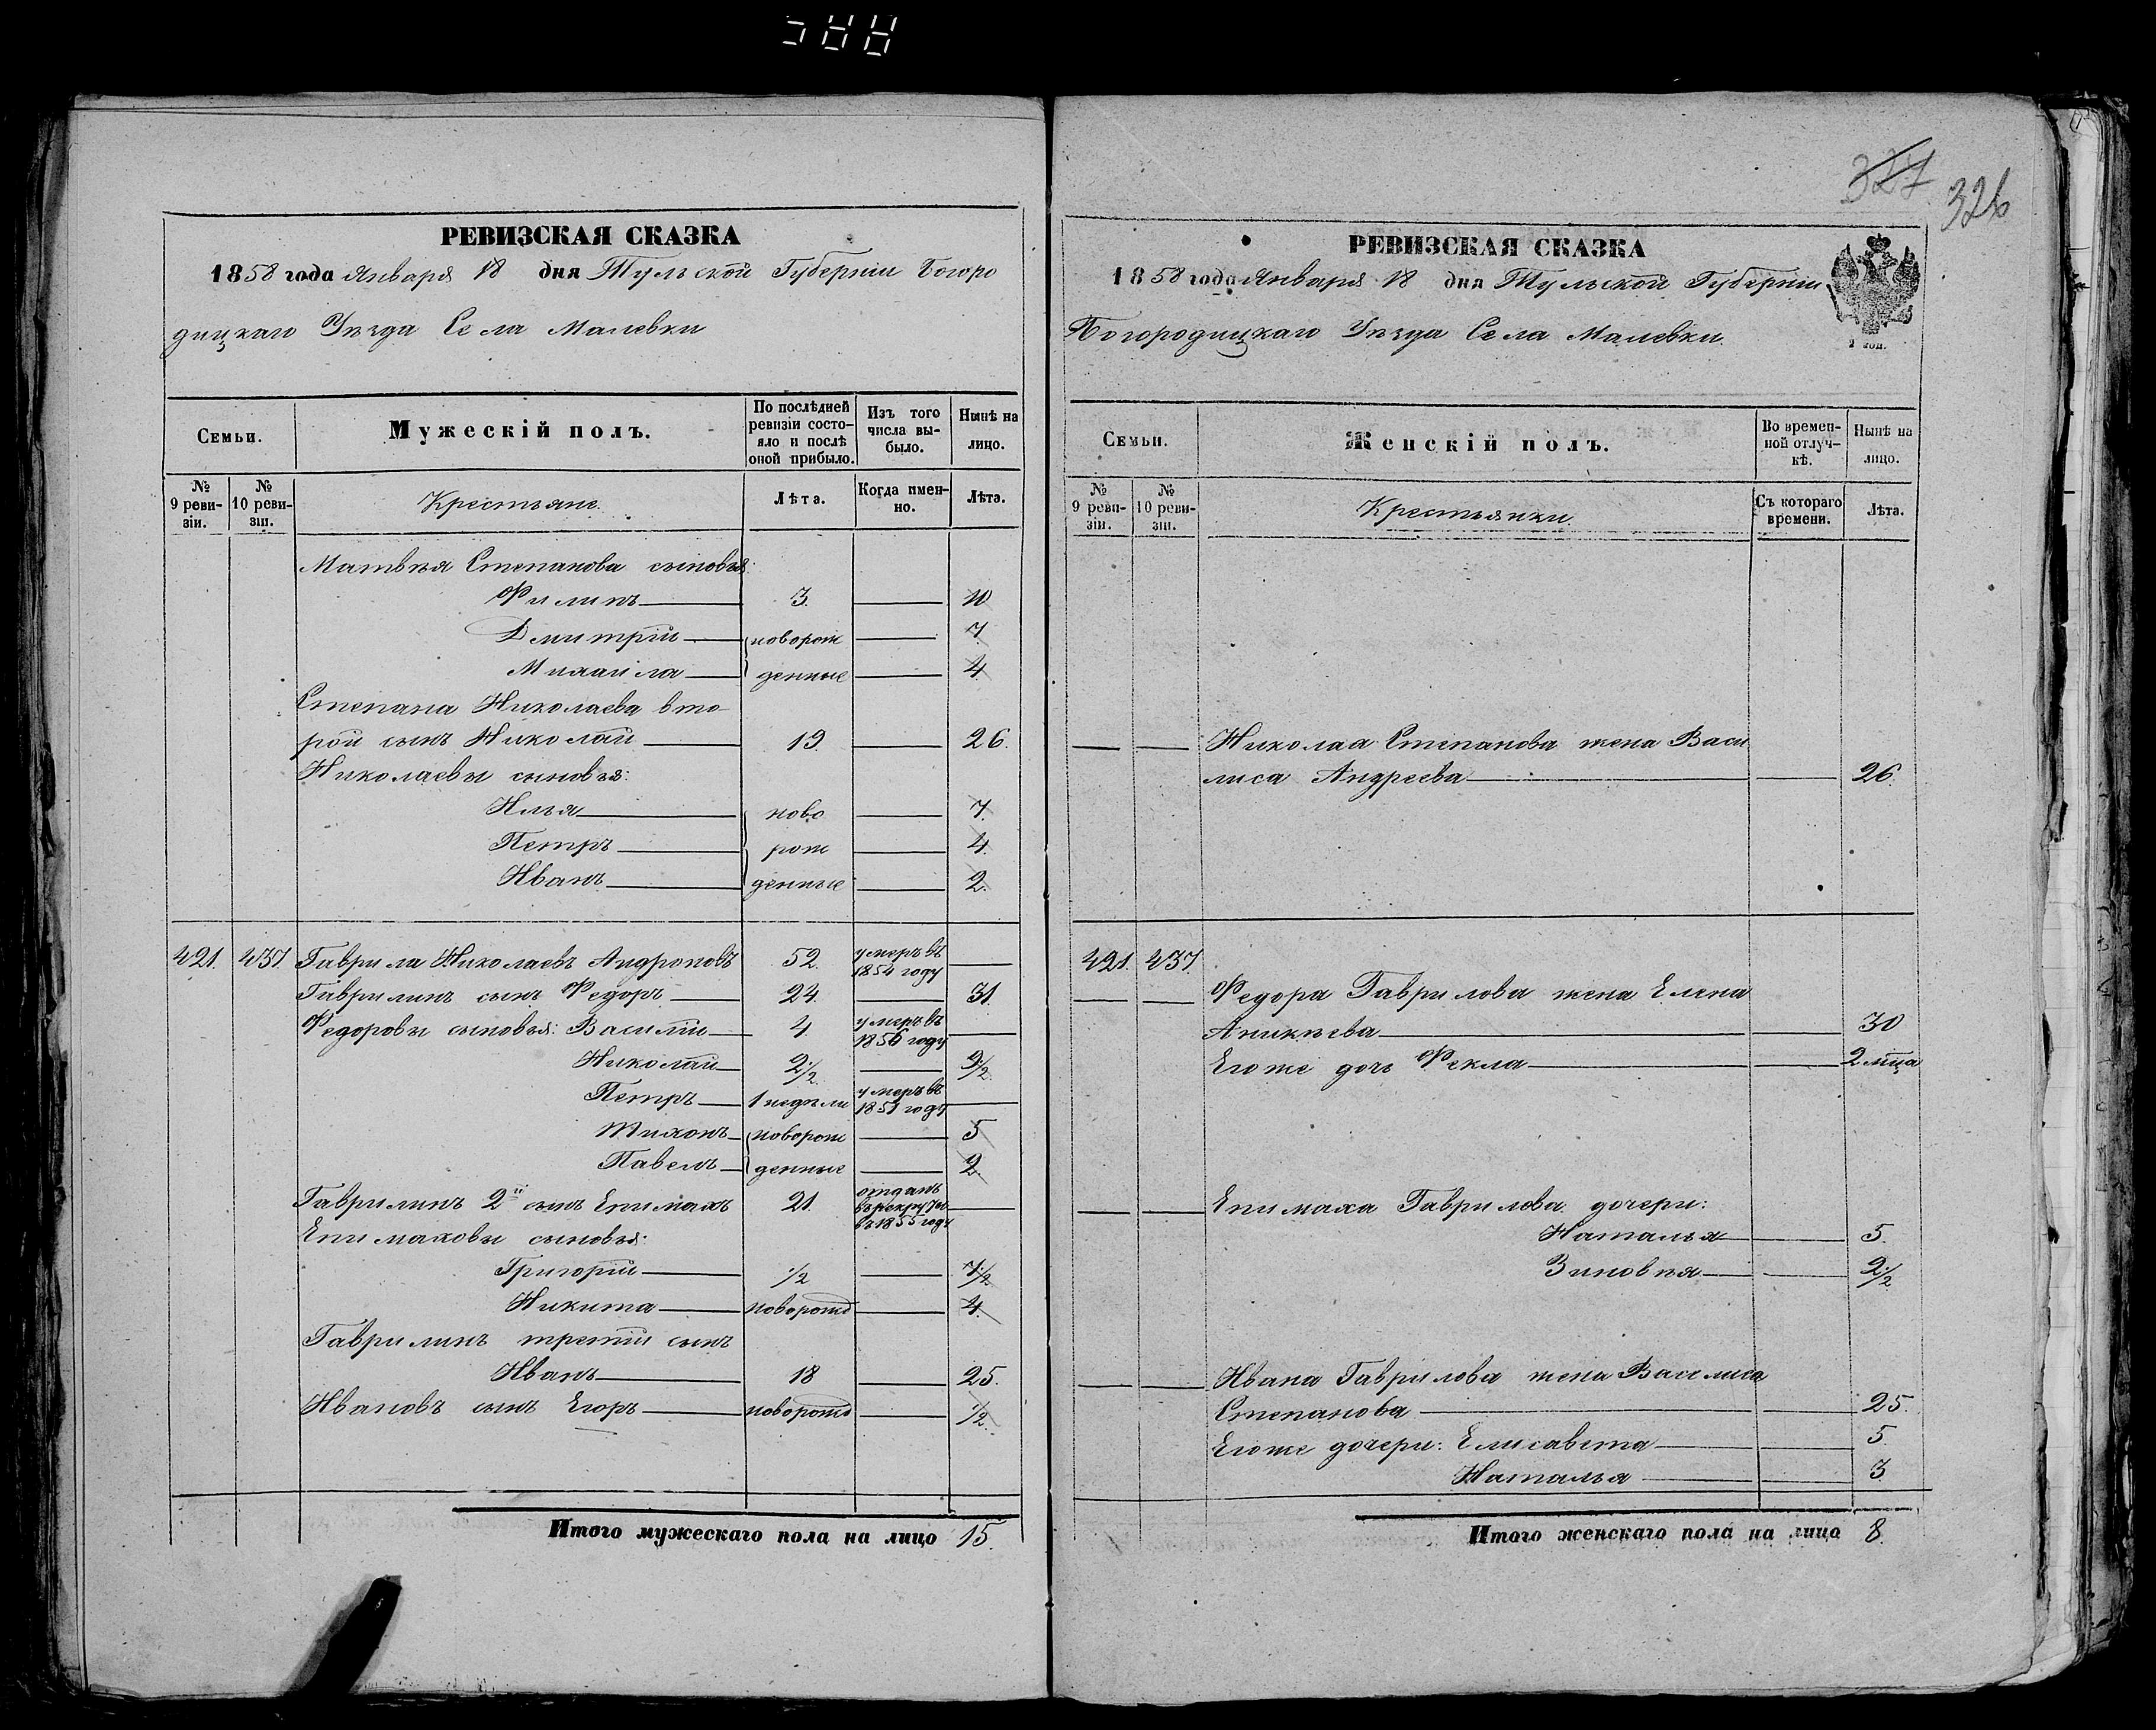 588
РЕВИЗСКАЯ СКАЗКА
1858 года Января 18 дня Тульской Губерніи Богоро
дицкаго Уѣзда Села Малевки
Семьи.
Мужескій полъ.
По послѣдней ревизіи состо-
яло и послѣ
оной прибыло.
Изъ того
числа вы-
было.
Нынѣ на
лицо.
№
9 реви-
зіи.
№
10 реви-
зіи.
Крестьяне.
Лѣта.
Когда имен-
но.
Лѣта.
Матвѣя Степанова сыновья:
Филипъ 3. 10
Дмитрій новорож 7
Михайла денные 4
Степана Николаева вто
рой сынъ Николай 19. 26.
Николаевы сыновья:
Илья ново 7.
Петръ рож 4.
Иванъ денные 2.
421. 437. Гаврила Николаевъ Андроновъ 52. умеръ въ 1854 году
Гаврилинъ сынъ Федоръ 24. 31.
Федоровы сыновья: Василій 4. умеръ въ 1856 году
Николай 2 1/2 9 1/2
Петръ 1 недѣли умеръ въ 1851 году
Тихонъ новорож 5
Павелъ денные 2.
Гаврилинъ 2й сынъ Епимахъ 21. отданъ въ рекруты въ 1855 году
Епимаховы сыновья:
Григорій 1/2 7 1/2
Никита новорожд 4.
Гаврилинъ третій сынъ
Иванъ 18 25.
Ивановъ сынъ Егоръ новорожд 1/2
Итого мужескаго пола на лицо 15.
327
326
РЕВИЗСКАЯ СКАЗКА
1858 года Января 18 дня Тульской Губерніи
Богородицкаго Уѣзда Села Малевки.
Семьи.
Женскій полъ.
Во времен-
ной отлуч-
кѣ.
Нынѣ на
лицо.
№
9 реви-
зіи.
№
10 реви-
зіи.
Крестьянки.
Съ котораго
времени.
Лѣта.
Николая Степанова жена Васи
лиса Андреева 26.
421. 437.
Федора Гаврилова жена Елена
Аникѣева 30
Егоже дочь Фекла 2 мѣца
Епимаха Гаврилова дочери:
Наталья 5.
Зиновѣя 2 1/2
Ивана Гаврилова жена Василиса
Степанова 25.
Егоже дочери: Елисавета 5
Наталья 3
Итого женскаго пола на лицо 8.